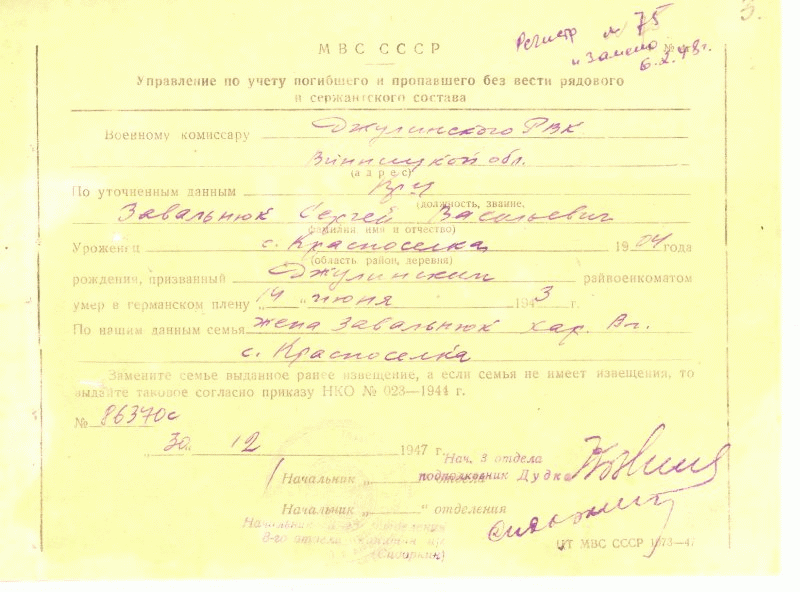 3.
Регистр № 75
"Замено
6.2.48 г.
МВС СССР
Управление по учету погибшего и пропавшего без вести рядового
и сержантского состава
Военному комиссару Джулинского РВК
Винницкой обл.
(адрес)
По уточненным данным
(должность, звание,
Завальнюк Сергей Васильевич
фамилия имя и отчество)
Уроженец с. Красноселка 1904 года
(область район, деревня)
рождения, призванный Джулинским райвоенкоматом
умер в германском плену „14 " июня 1943 г.
По нашим данным семья жена Завальнюк хар. Вл.
с. Красноселка
Замените семье выданное ранее извещение, а если семья не имеет извещения, то
выдайте таковое согласно приказу НКО № 023—1944 г.
№ 86370с
„ 30 " 12 1947 г.
Нач. 3 отдела
Начальник подполковник Дудка
Начальник „ " отделения
Начальник
8-го отдела
(Сидоркин)
МВС СССР 1873—47